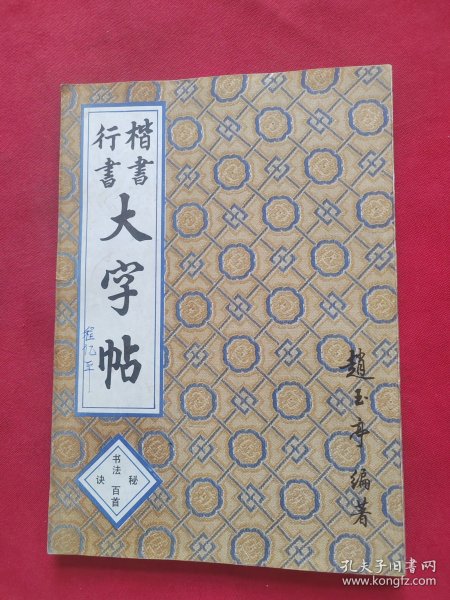 楷書
行書
大字帖
程忆平
书法
秘
诀
百首
趙玉亭編著
孔夫子旧书网
www.kongfz.com